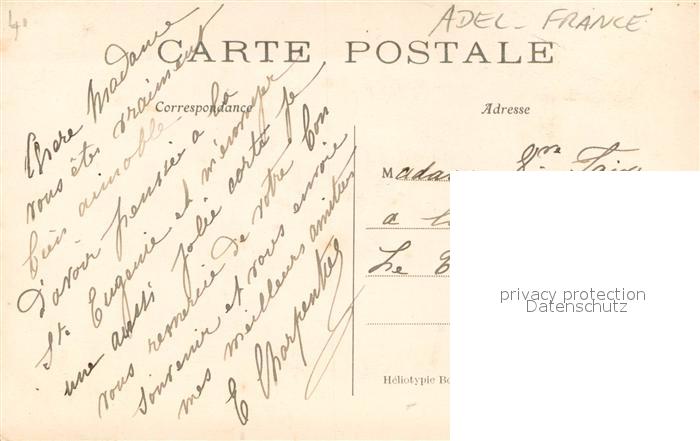 40
ADEL - FRANCE
CARTE POSTALE
Correspondance
Adresse
Chere Madame
vous êtes vraiment
bien aimable
D'avoir pensée a la
Ste Eugenie et m'envoyer
une aussi jolie carte je
vous remercie de votre bon
souvenir et vous envoie
mes meilleurs amitiés
E Charpentier
Madame
a
Le
Héliotypie
privacy protection
Datenschutz